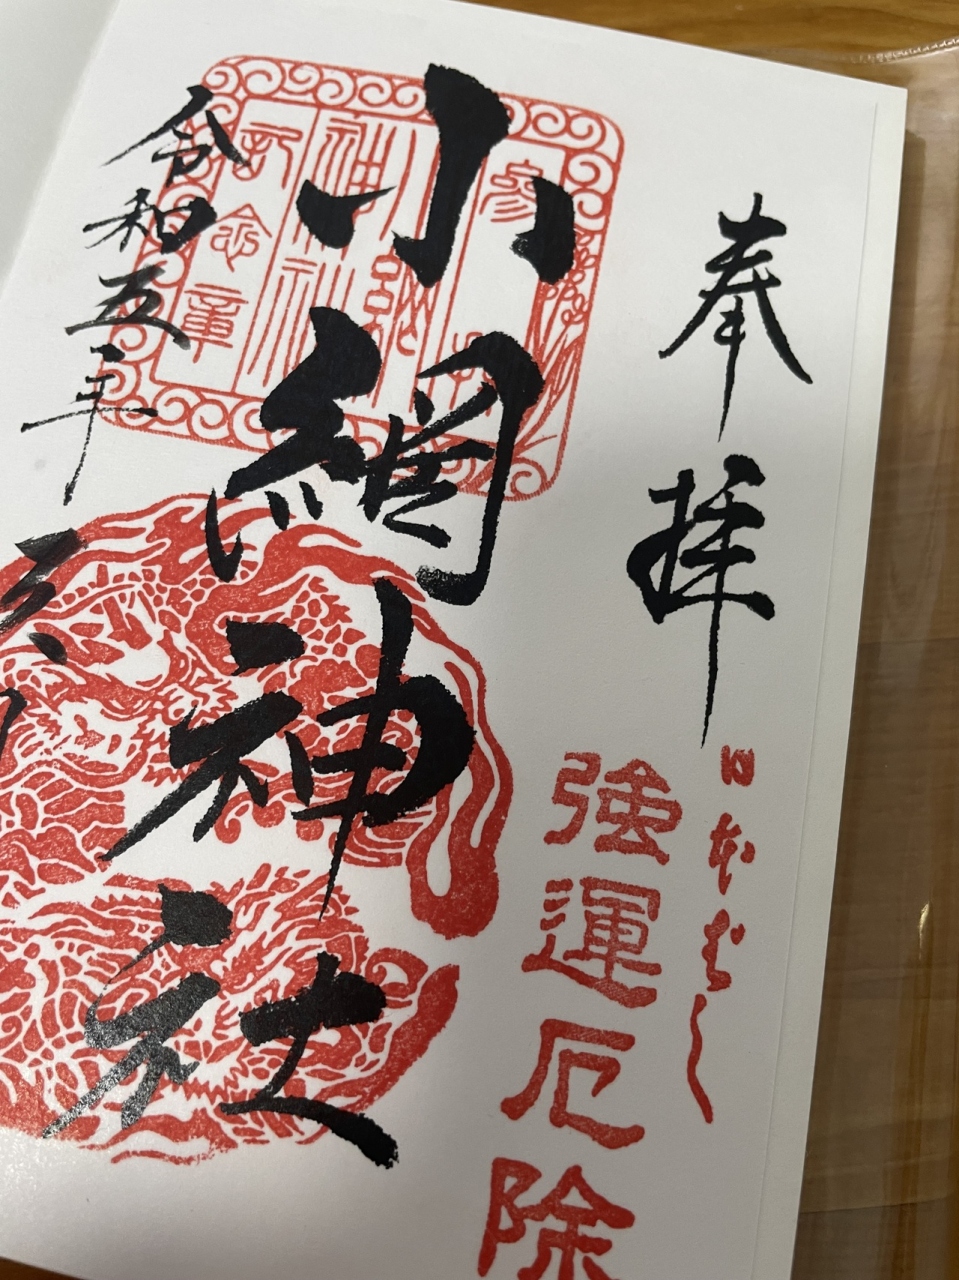 奉拝
日本ばし
強運厄除
小網神社
参拝
小網
神社
記念章
令和五年